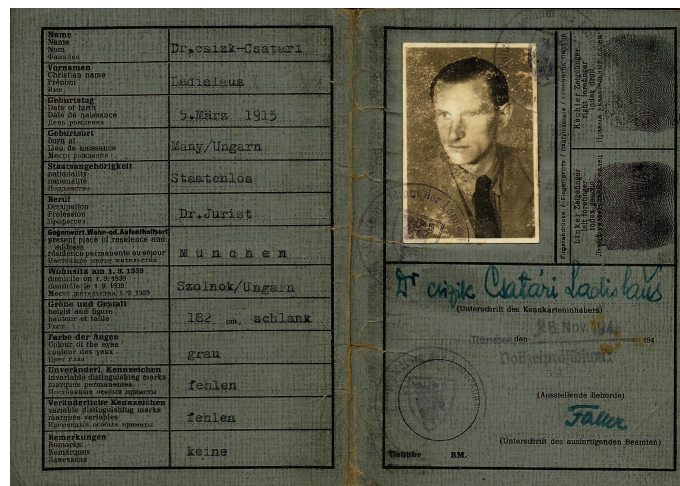 Name
Name
Nom
Фамилия
Dr.csizk-Csatári
Vornamen
Christian name
Prénom
Имя
Ladislaus
Geburtstag
Date of birth
Date de naissance
День рождения
5.März 1915
Geburtsort
Born at
Lieu de naissance
Место рождения
Many/Ungarn
Staatsangehörigkeit
nationality
nationalité
Подданство
Staatenlos
Beruf
Occupation
Profession
Профессия
Dr.Jurist
Gegenwärt. Wohn-od. Aufenthaltsort
present place of residence and
address
résidence permanente ou séjour
Настоящее место жительства
München
Wohnsitz am 1. 9. 1939
domicile on 1. 9. 1939
domicile le 1. 9. 1939
Место жительства 1. 9. 1939
Szolnok/Ungarn
Größe und Gestalt
height and figure
hauteur et taille
Рост
182 cm, schlank
Farbe der Augen
Colour of the eyes
couleur des yeux
Цвет глаз
grau
Unveränderl. Kennzeichen
invariable distinguishing marks
marques permanentes
Постоянные особые приметы
fehlen
Veränderliche Kennzeichen
variable distinguishing marks
marques variables
fehlen
Bemerkungen
Remarks
Remarques
Замечания
keine
Rechter Zeigefinger
right forefinger
index droit
Linker Zeigefinger
left forefinger
index gauche
Fingerabdrücke / Fingerprints / Dactyloscopie
Dr csizik Csatári Ladislaus
(Unterschrift des Kennkarteninhabers)
München, den 26. Nov. 194
Polizeipräsidium
(Ausstellende Behörde)
Faller
(Unterschrift des ausfertigenden Beamten)
Gebühr RM.